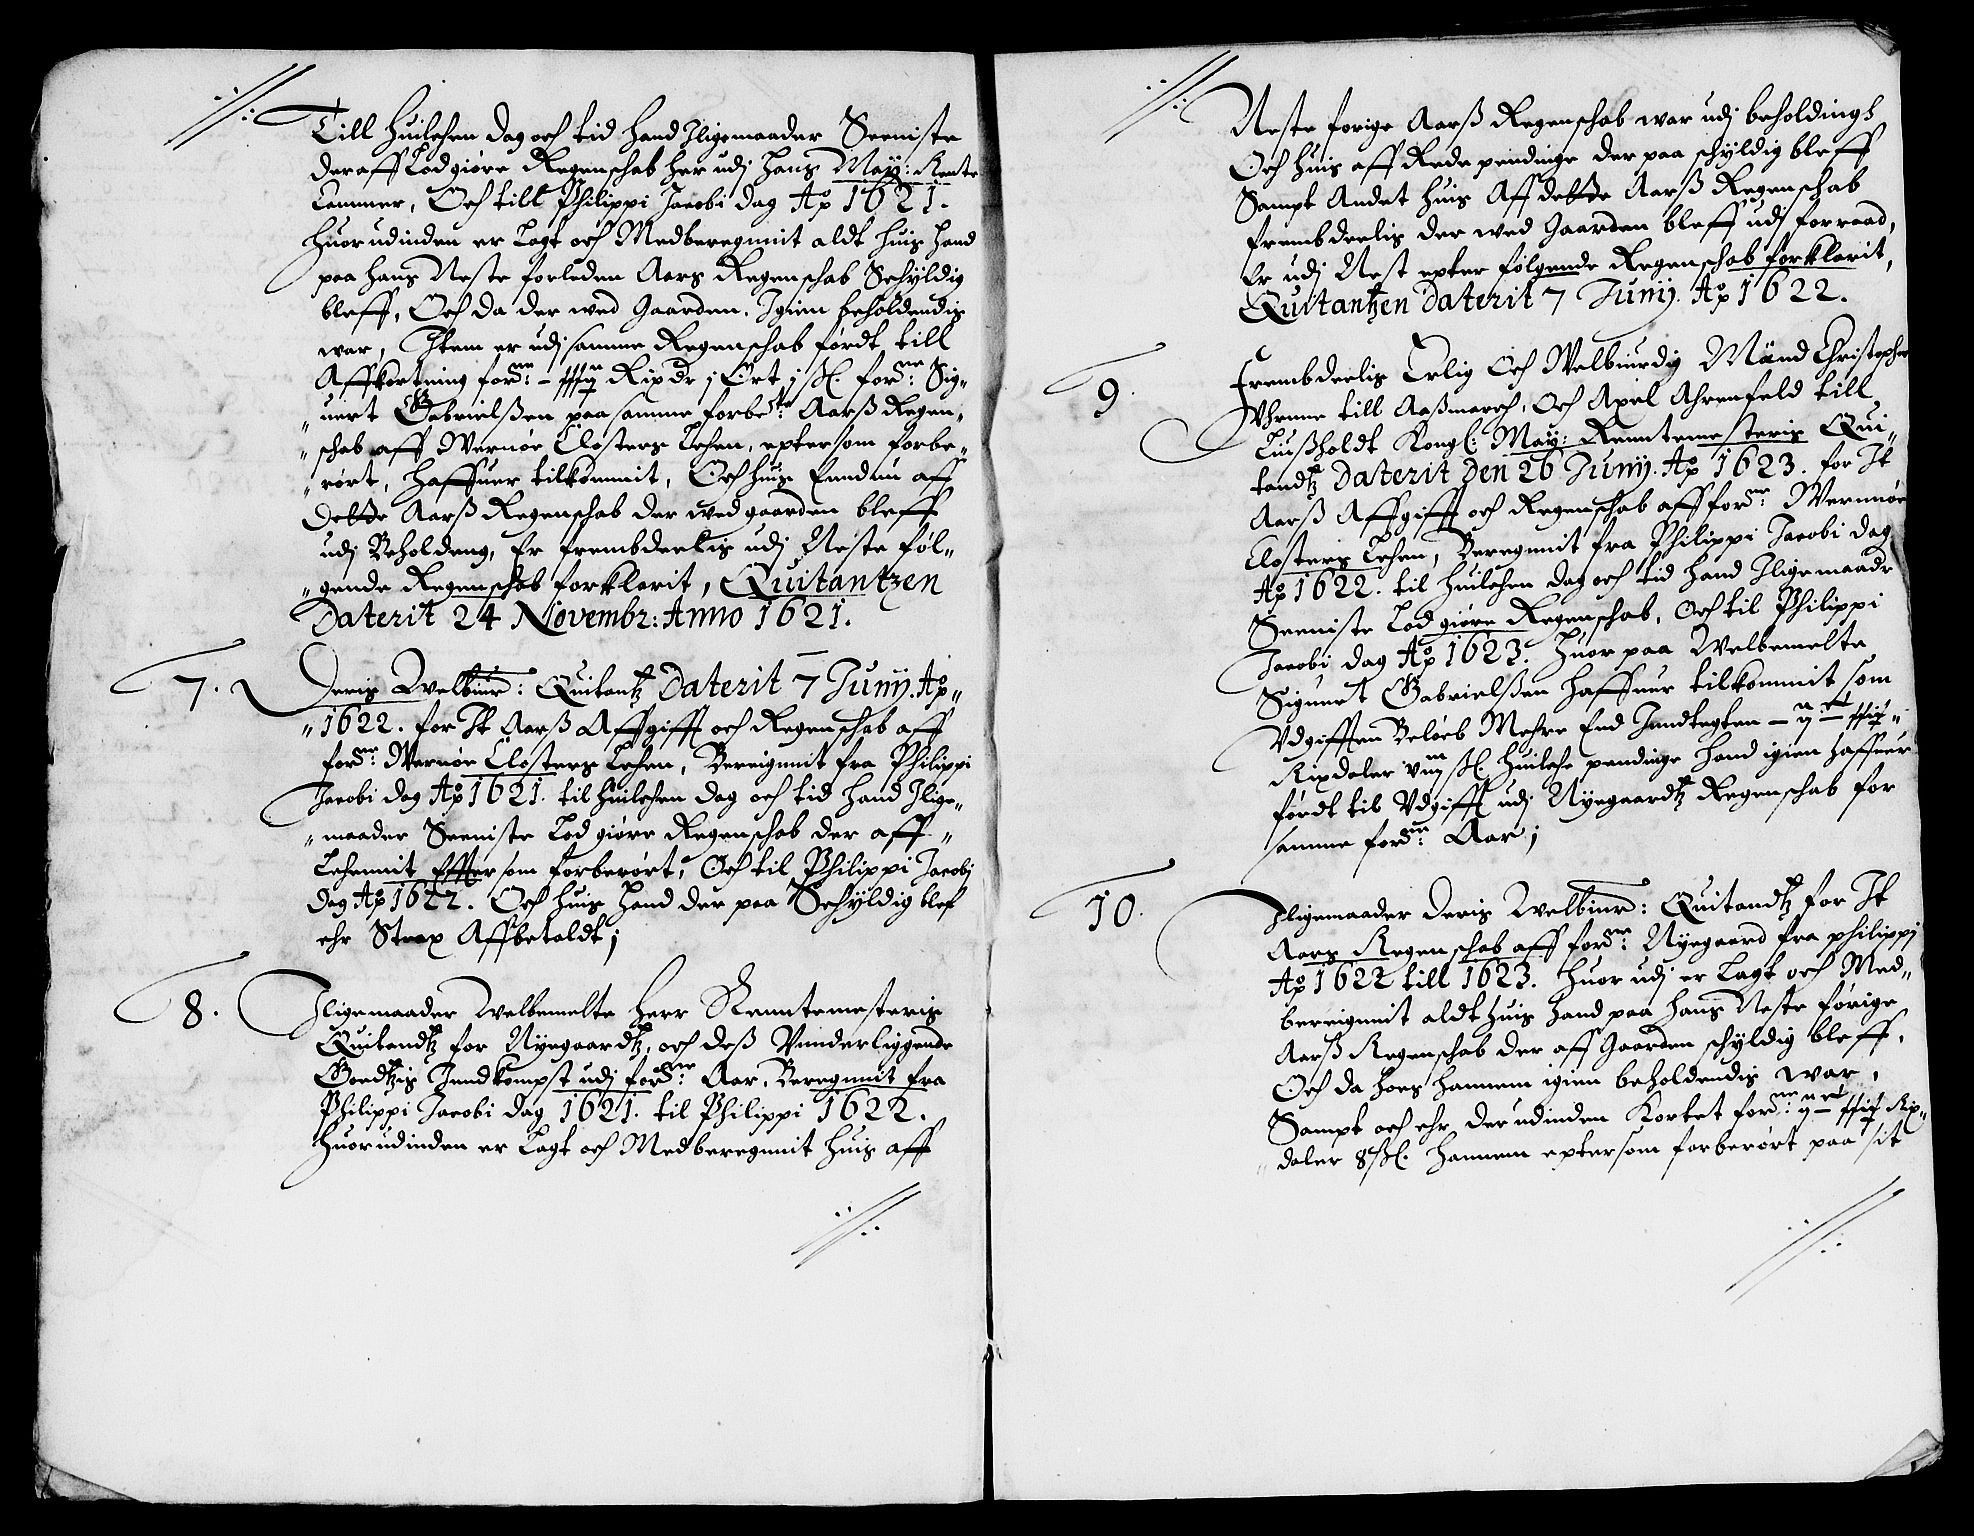 Till huilchen dag och tid hand Jligemaader Seeniste
deraff Lod giøre Regenschab her udj Hans May: Rente
Cammer, Och till Philippi Jacobi dag Ao 1621.
huor udinden er Lagt och Medberegnnit aldt huis hand
paa hans Neste forleden Aars Regenschab Schyldig
bleff, Och da der wed Gaarden. Igien beholdendis
war, Jtem er udj samme Regenschab førdt till
Affkortning fordne: Rixdr j Ort j ß. fordne: Sig-
uert Gabrielßen paa samme forbete: Aarß Regen-
schab aff Wernøe Closters Lehen, epter som forbe-
rørt, haffuer tilkommit, Och huis Enndnu aff
dette Aarß Regenschab der wed gaarden bleff
udj Beholdeng, Er frembdeelis udj Neste føl-
gende Regenschab forklarit, Quitantzen
Daterit 24 Novembr: Anno 1621.
7. Deris Welbiur: Quitantz Daterit 7 Junij. Ao
1622. for It Aarß Affgifft och Regenschab aff
fordne: Wernøe Closters Lehen, Bereignnit fra Philippi
Jacobi dag Ao 1621. til huilchen dag och tid hand Jlige-
maader Seeniste Lod giøre Regenschab der aff
Lehennit Effter som forberørt, Och til Philippi Jacobj
dag Ao 1622. Och huis Hand der paa Schyldig blef
ehr Strax Affbetaldt;
8. Jligemaader Welbemelte Herr Renntemesteris
Quitandtz for Nyegaardtz, och deß Vnnderliggende
Goedtzis Jnndkompst udj fordne: Aar, Beregnnit fra
Philippi Jacobi dag 1621. til Philippi 1622.
huor udinden er Lagt och Medberegnnit huis aff
Neste forige Aarß Regenschab war udj beholdingh
Och huis aff Rede pendinge der paa schyldig bleff
Sampt Andet huis Aff dette Aarß Regenschab
frembdeelis der wed Gaarden bleff udj forraad,
Er udj Nest epter følgende Regenschab forklarit,
Quitantzen Daterit 7 Junij. Ao 1622.
9. Frembdeelis Erlig Och Welbiurdig Mænd Christopher
Vhrnne till Aaßmarch, Och Axel Ahrenfeld till
Lußholdt Kongl: May: Renntemesteris Qui-
tandtz Daterit Den 26 Junij. Ao 1623. for It
Aarß Affgifft och Regenschab aff fordne: Wernnøe
Closters Lehen, Beregnnit fra Philippi Jacobi dag
Ao 1622. til huilchen dag och tid hand Jligemaadr
Seeniste Lod giøre Regenschab, Och til Philippi
Jacobi dag Ao 1623. Huor paa Welbemelte
Siguert Gabrielßen haffuer tilkommit som
Vdgifften Beløeb Mehre End Jnndtegten
Rixdaler viij ß. huilche pendinge hand igien haffuer
førdt til Vdgifft udj Nyegaardtz Regenschab for
samme fordne: Aar;
10. Jligemaader Deris Welbiur: Quitandtz for It
Aars Regenschab aff fordne: Nyegaard fra philippj
Ao 1622 till 1623. Huor udj er Lagt och Med-
bereignnit aldt huis hand paa hans Neste førige
Aarß Regenschab der aff Gaarden schyldig bleff,
Och da hoes hannem igien beholdendis war,
Sampt och ehr der udinden Kortet fordne: Rix-
daler 8 ß. hannem eptersom forberørt paa sit